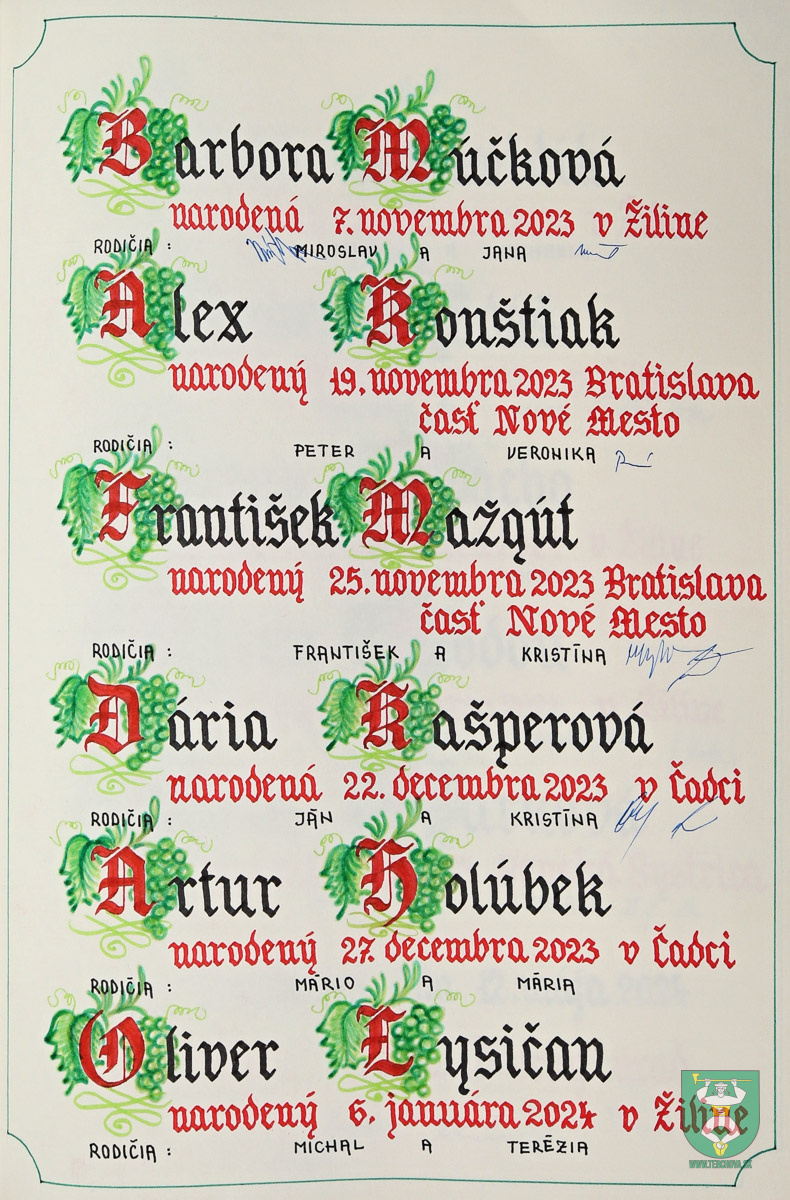 Barbora Múčková
narodená 7. novembra 2023 v Žiline
RODIČIA : MIROSLAV A JANA
Alex Kouštiak
narodený 19. novembra 2023 Bratislava
časť Nové Mesto
RODIČIA : PETER A VERONIKA
František Mažgút
narodený 25. novembra 2023 Bratislava
časť Nové Mesto
RODIČIA : FRANTIŠEK A KRISTÍNA
Dária Kašperová
narodená 22. decembra 2023 v Čadci
RODIČIA : JÁN A KRISTÍNA
Artur Holúbek
narodený 27. decembra 2023 v Čadci
RODIČIA : MÁRIO A MÁRIA
Oliver Lysičan
narodený 6. januára 2024 v Žiline
RODIČIA : MICHAL A TERÉZIA
WWW.TERCHOVA.SK